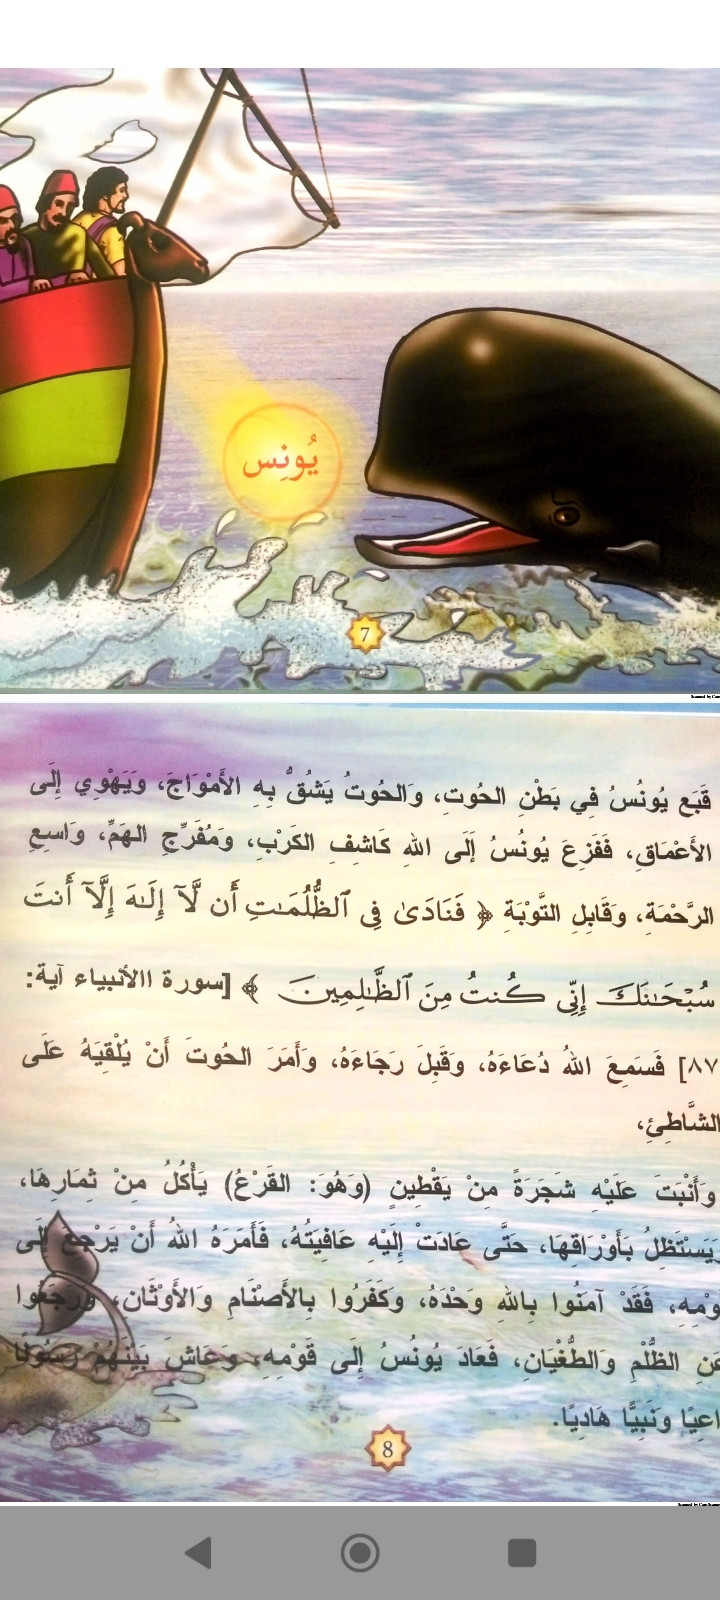 يُونِس
7
Scanned by Cam
قَبَع يُونُسُ فِي بَطْنِ الحُوتِ، وَالحُوتُ يَشُقُّ بِهِ الأَمْوَاجَ، وَيَهْوِي إِلَى
الأَعْمَاقِ، فَفَزِعَ يُونُسُ إَلَى اللهِ كَاشِفِ الكَرْبِ، وَمُفَرِّجِ الهَمِّ، وَاسِعِ
الرَّحْمَةِ، وَقَابِلِ التَّوْبَةِ ﴿ فَنَادَىٰ فِي ٱلظُّلُمَـٰتِ أَن لَّآ إِلَـٰهَ إِلَّآ أَنتَ
سُبْحَـٰنَكَ إِنِّي كُنتُ مِنَ ٱلظَّـٰلِمِينَ ﴾ [سورة االأنبياء آية:
٨٧] فَسَمِعَ اللهُ دُعَاءَهُ، وَقَبِلَ رَجَاءَهُ، وَأَمَرَ الحُوتَ أَنْ يُلْقِيَهُ عَلَى
الشَّاطِئِ،
وَأَنْبَتَ عَلَيْهِ شَجَرَةً مِنْ يَقْطِينٍ (وَهُوَ: القَرْعُ) يَأْكُلُ مِنْ ثِمَارِهَا،
وَيَسْتَظِلُ بَأَوْرَاقِهَا، حَتَّى عَادَتْ إِلَيْهِ عَافِيَتُهُ، فَأَمَرَهُ اللهُ أَنْ يَرْجِعَ إِلَى
ومِهِ، فَقَدْ آمَنُوا بِاللهِ وَحْدَهُ، وَكَفَرُوا بِالأَصْنَامِ وَالأَوْثَانِ، وَرَجَعُوا
عَنِ الظُّلْمِ وَالطُّغْيَانِ، فَعَادَ يُونُسُ إِلَى قَوْمِهِ، وَعَاشَ بَيْنَهُمْ رَسُولًا
اعِيًا وَنَبِيًّا هَادِيًا.
8
Scanned by Cam Scanne